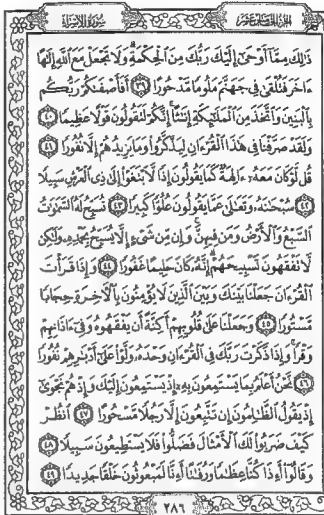 الجزء الخامس عشر
سورة الإسراء
ذَٰلِكَ مِمَّا أَوْحَىٰ إِلَيْكَ رَبُّكَ مِنَ الْحِكْمَةِ وَلَا تَجْعَلْ مَعَ اللَّهِ إِلَٰهًا
ءَاخَرَ فَتُلْقَىٰ فِي جَهَنَّمَ مَلُومًا مَّدْحُورًا ٣٩ أَفَأَصْفَىٰكُمْ رَبُّكُم
بِالْبَنِينَ وَاتَّخَذَ مِنَ الْمَلَٰئِكَةِ إِنَٰثًا إِنَّكُمْ لَتَقُولُونَ قَوْلًا عَظِيمًا ٤٠
وَلَقَدْ صَرَّفْنَا فِي هَٰذَا الْقُرْءَانِ لِيَذَّكَّرُوا وَمَا يَزِيدُهُمْ إِلَّا نُفُورًا ٤١
قُل لَّوْ كَانَ مَعَهُ ءَالِهَةٌ كَمَا يَقُولُونَ إِذًا لَّابْتَغَوْا إِلَىٰ ذِي الْعَرْشِ سَبِيلًا
٤٢ سُبْحَٰنَهُ وَتَعَٰلَىٰ عَمَّا يَقُولُونَ عُلُوًّا كَبِيرًا ٤٣ تُسَبِّحُ لَهُ السَّمَٰوَٰتُ
السَّبْعُ وَالْأَرْضُ وَمَن فِيهِنَّ وَإِن مِّن شَيْءٍ إِلَّا يُسَبِّحُ بِحَمْدِهِ وَلَٰكِن
لَّا تَفْقَهُونَ تَسْبِيحَهُمْ إِنَّهُ كَانَ حَلِيمًا غَفُورًا ٤٤ وَإِذَا قَرَأْتَ
الْقُرْءَانَ جَعَلْنَا بَيْنَكَ وَبَيْنَ الَّذِينَ لَا يُؤْمِنُونَ بِالْءَاخِرَةِ حِجَابًا
مَّسْتُورًا ٤٥ وَجَعَلْنَا عَلَىٰ قُلُوبِهِمْ أَكِنَّةً أَن يَفْقَهُوهُ وَفِي ءَاذَانِهِمْ
وَقْرًا وَإِذَا ذَكَرْتَ رَبَّكَ فِي الْقُرْءَانِ وَحْدَهُ وَلَّوْا عَلَىٰ أَدْبَٰرِهِمْ نُفُورًا
٤٦ نَّحْنُ أَعْلَمُ بِمَا يَسْتَمِعُونَ بِهِ إِذْ يَسْتَمِعُونَ إِلَيْكَ وَإِذْ هُمْ نَجْوَىٰ
إِذْ يَقُولُ الظَّٰلِمُونَ إِن تَتَّبِعُونَ إِلَّا رَجُلًا مَّسْحُورًا ٤٧ انظُرْ
كَيْفَ ضَرَبُوا لَكَ الْأَمْثَالَ فَضَلُّوا فَلَا يَسْتَطِيعُونَ سَبِيلًا ٤٨
وَقَالُوا أَءِذَا كُنَّا عِظَٰمًا وَرُفَٰتًا أَءِنَّا لَمَبْعُوثُونَ خَلْقًا جَدِيدًا ٤٩
٢٨٦